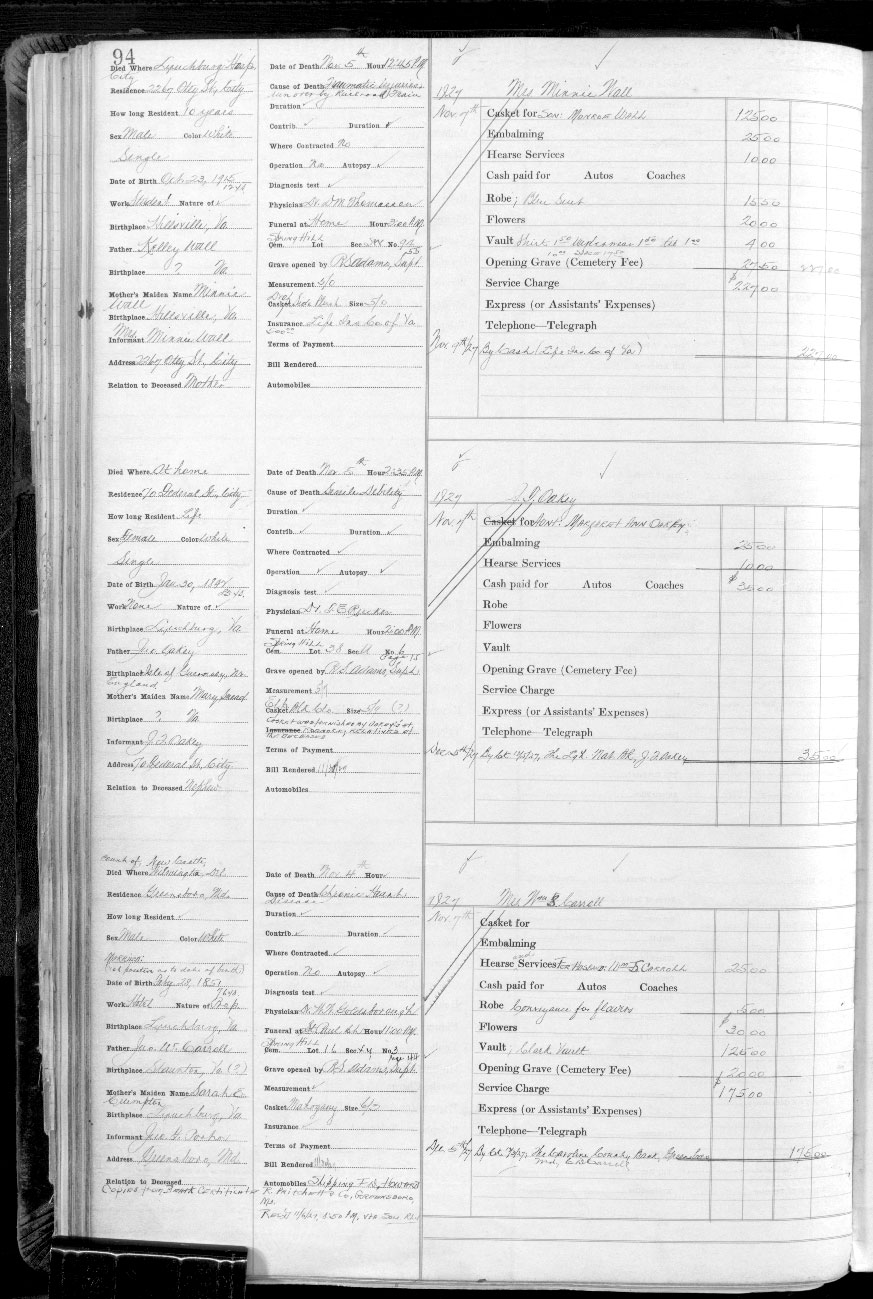 94
Died Where Lynchburg Hosp.
City
Residence 2267 Otey St., City
How long Resident 10 years
Sex Male Color White
Single
Date of Birth Oct. 23, 1915
12 yrs
Work Student Nature of ✓
Birthplace Hillsville, Va
Father Kelley Wall
Birthplace ? Va
Mother's Maiden Name Minnie
Wall
Birthplace Hillsville, Va
Informant Mrs Minnie Wall
Address 2267 Otey St., City
Relation to Deceased Mother
Date of Death Nov 5th Hour 12:45 P.M.
Cause of Death Traumatic
run over by Railroad Train
Duration ✓
Contrib. ✓ Duration ✓
Where Contracted No
Operation No Autopsy ✓
Diagnosis test ✓
Physician Dr. D.M. Thomasson
Funeral at Home Hour 2:00 P.M.
Spring Hill
Cem. Lot Sec. No.
Grave opened by R.S. Adams, Supt.
Measurement 5/0
Casket Size 5/0
Insurance Life Ins Co of Va
Terms of Payment
Bill Rendered
Automobiles
1927 Mrs Minnie Wall
Nov. 7th Casket for Son: Monroe Wall 125.00
Embalming 25.00
Hearse Services 10.00
Cash paid for Autos Coaches
Robe, Blue Suit 15.50
Flowers 20.00
Vault Shirt 1.50 Underwear 1.50 1.00 4.00
Opening Grave (Cemetery Fee) 27.50 227.00
Service Charge $227.00
Express (or Assistants' Expenses)
Telephone—Telegraph
Nov. 9th/27 By Cash (Life Ins. Co of Va) 227.00
Died Where At home
Residence 70 Federal St., City
How long Resident Life
Sex Female Color White
Single
Date of Birth Jan 30, 1847
Work None Nature of ✓
Birthplace Lynchburg, Va
Father Jno. Oakey
Birthplace Isle of Guernsey,
England
Mother's Maiden Name Mary
Birthplace ? Va
Informant J.F. Oakey
Address 70 Federal St. City
Relation to Deceased Nephew
Date of Death Nov 5th Hour 2:35 P.M.
Cause of Death Senile Debility
Duration ✓
Contrib. ✓ Duration ✓
Where Contracted ✓
Operation ✓ Autopsy ✓
Diagnosis test ✓
Physician Dr. Rucker
Funeral at Home Hour 2:00 P.M.
Spring Hill
Cem. Lot 38 Sec. No. 6
Page 15
Grave opened by R.S. Adams, Supt.
Measurement
Casket Size (?)
Casket was furnished by Oakey's of
Insurance Roanoke, relatives of
the deceased
Terms of Payment
Bill Rendered
Automobiles
1927 Oakey
Nov. 7th Casket for Aunt: Margaret Ann Oakey
Embalming 25.00
Hearse Services 10.00
Cash paid for Autos Coaches $35.00
Robe
Flowers
Vault
Opening Grave (Cemetery Fee)
Service Charge
Express (or Assistants' Expenses)
Telephone—Telegraph
Dec 5th/27 By Ck. The Nat. Bk., J.F. Oakey 35.00
County of, New Castle,
Died Where Wilmington, Del.
Residence Greensboro, Md.
How long Resident ✓
Sex Male Color White
(not positive as to date of birth)
Date of Birth July 28, 1851
76 yrs
Work Retired Nature of
Birthplace Lynchburg, Va
Father Jno. W. Carroll
Birthplace Staunton, Va (?)
Mother's Maiden Name Sarah E
Crumpton
Birthplace Lynchburg, Va
Informant
Address Greensboro, Md.
Relation to Deceased
Copied from Death Certificate
Date of Death Nov 4th Hour
Cause of Death Chronic Heart
Disease
Duration ✓
Contrib. ✓ Duration ✓
Where Contracted ✓
Operation No Autopsy ✓
Diagnosis test ✓
Physician Dr. Goldsborough
Funeral at St. Paul Ch. Hour 11:00 A.M.
Spring Hill
Cem. Lot 16 Sec. No. 3
Grave opened by R.S. Adams, Supt.
Measurement ✓
Casket Mahogany Size
Insurance ✓
Terms of Payment
Bill Rendered
Automobiles Shipping F.D.,
R. Pritchett & Co, Greensboro,
Md.
Rec'd 11/6/27, 1:50 P.M., via Sou. Ry.
1927 Mrs Wm S Carroll
Nov. 7th Casket for
Embalming
Hearse Services For Husband: Wm S Carroll 25.00
Cash paid for Autos Coaches
Robe Conveyance for flowers 5.00
Flowers $30.00
Vault, Clark Vault 125.00
Opening Grave (Cemetery Fee) 20.00
Service Charge $175.00
Express (or Assistants' Expenses)
Telephone—Telegraph
Dec. 5th/27 By Ck. The Caroline County Bank, Greensboro 175.00
Md.,